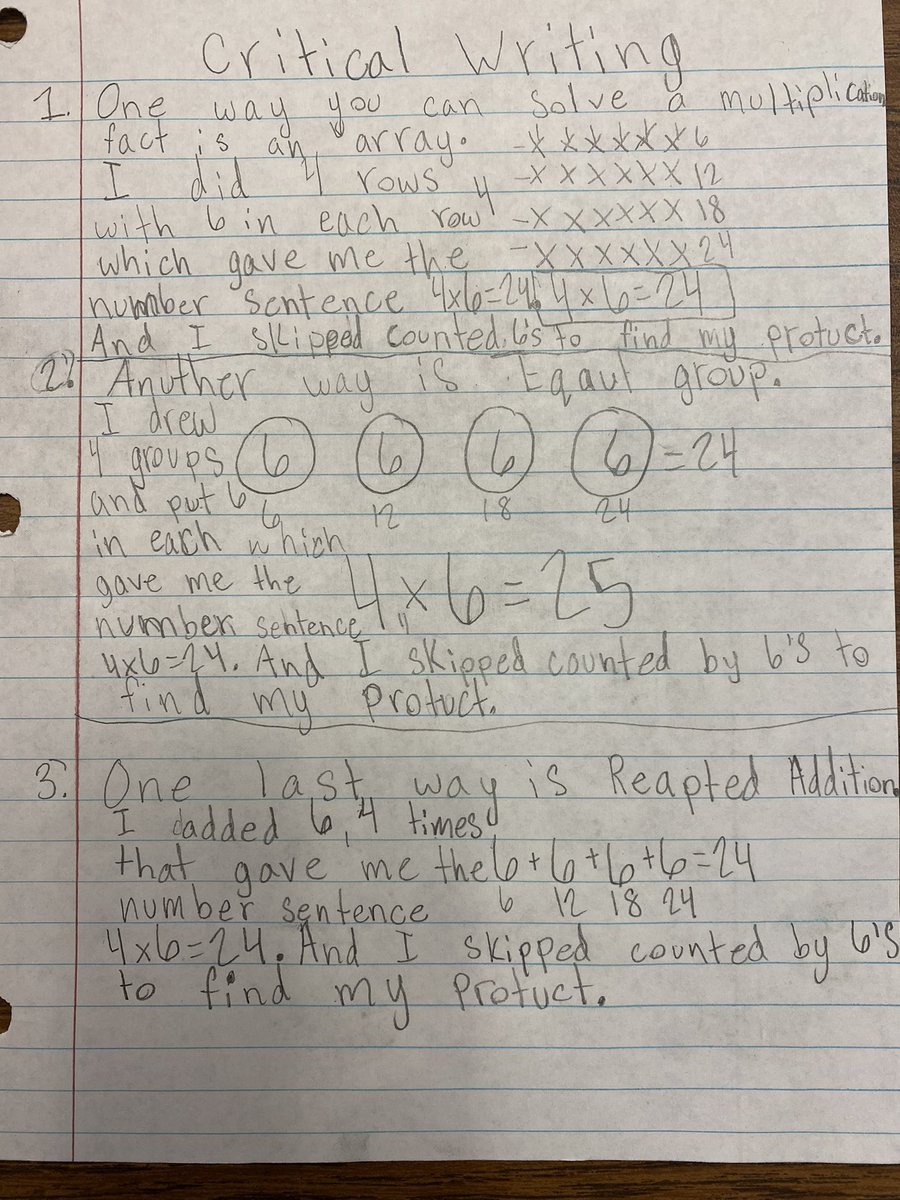 Critical Writing
1. One way you can solve a multiplication
fact is an array. -X X X X X X 6
I did 4 rows 4 -X X X X X X 12
with 6 in each row -X X X X X X 18
which gave me the -X X X X X X 24
number sentence 4x6=24. 4x6=24
And I skipped counted 6's to find my protuct.
2. Anuther way is Eqaul group.
I drew
4 groups 6 6 6 6 =24
and put 6 6 12 18 24
in each which
gave me the 4x6=25
number sentence
4x6=24. And I skipped counted by 6's to
find my protuct.
3. One last way is Reapted Addition.
I added 6, 4 times
that gave me the 6+6+6+6=24
number sentence 6 12 18 24
4x6=24. And I skipped counted by 6's
to find my protuct.